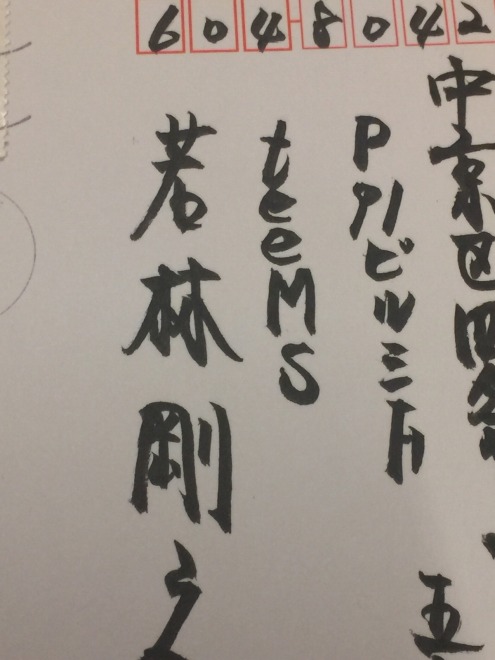 6048042
中京区四条
五
P91ビル三F
teeMS
若林剛之